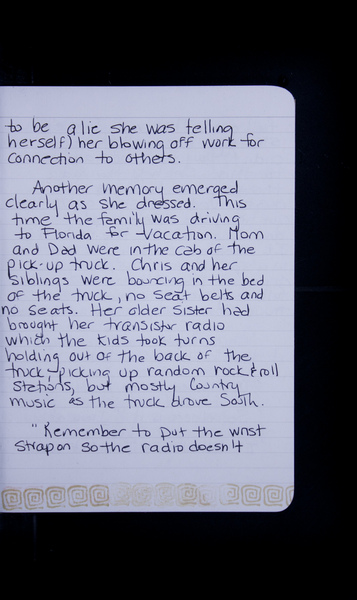 to be a lie she was telling
herself) her blowing off work for
connection to others.
Another memory emerged
clearly as she dressed. This
time the family was driving
to Florida for vacation. Mom
and Dad were in the cab of the
pick-up truck. Chris and her
siblings were bouncing in the bed
of the truck, no seat belts and
no seats. Her older sister had
brought her transistor radio
which the kids took turns
holding out of the back of the
truck, picking up random rock & roll
stations, but mostly Country
music as the truck drove South.
"Remember to put the wrist
strap on so the radio doesn't